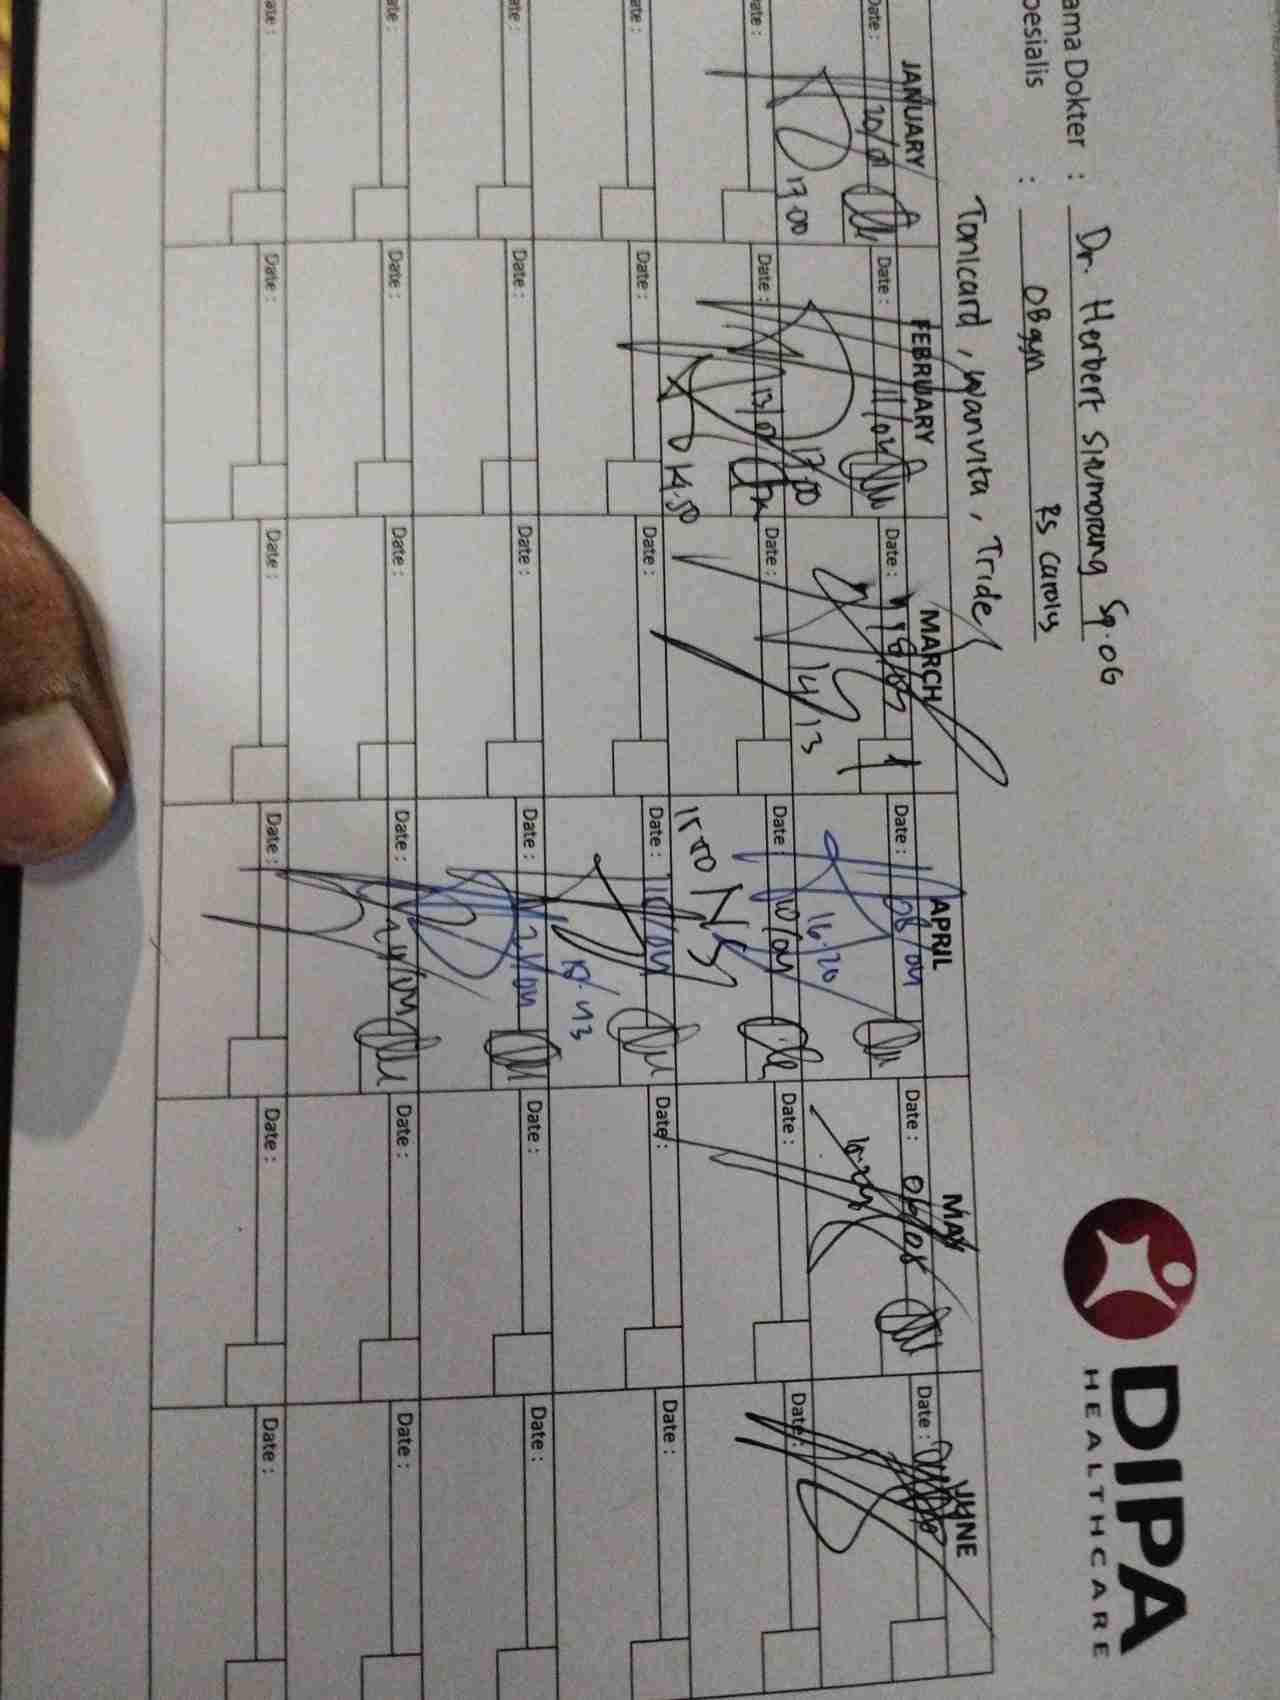 DIPA
HEALTHCARE
ama Dokter : Dr. Herbert Situmorang Sp.OG
pesialis : OBgyn RS Carolus
Tonicard, Wanvita, Tride
JANUARY FEBRUARY MARCH APRIL MAY JUNE
Date : 20/01 Date : 11/02 Date : Date : 08/04 Date : 06/05 Date :
17.00 17.00 14/13 16.20
ate : Date : 13/02 Date : Date : 10/04 Date : Date :
14.50 15.00
ate : Date : Date : Date : Date : Date :
18.43
ate : Date : Date : Date : 21/04 Date : Date :
ate : Date : Date : Date : 24/04 Date : Date :
ate : Date : Date : Date : Date : Date :